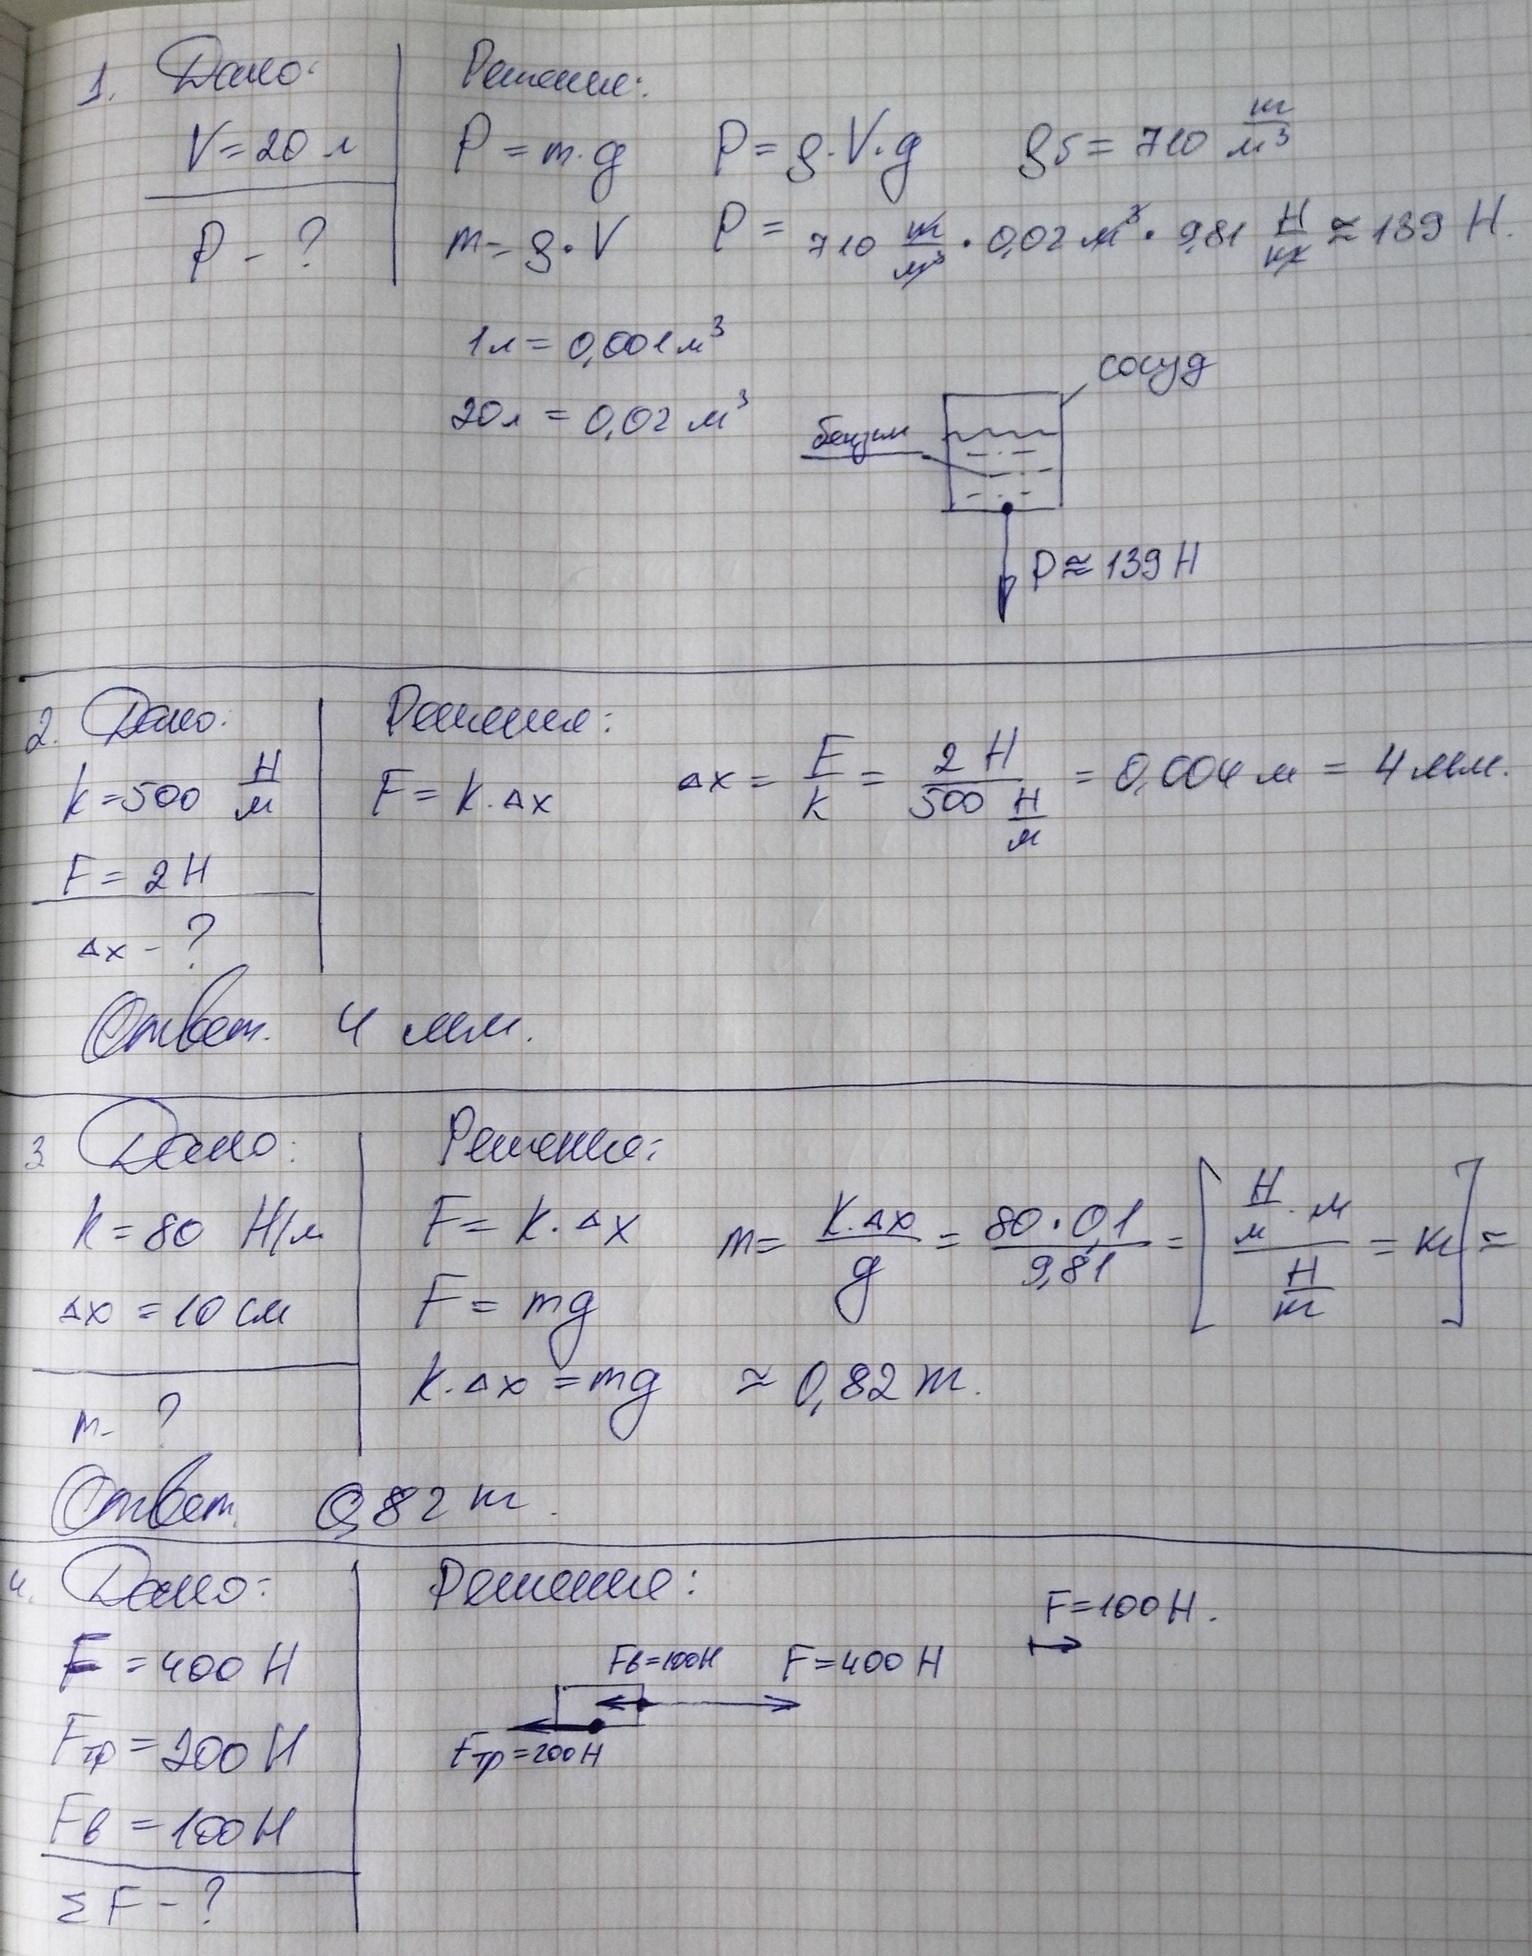 1. Дано:
V = 20 л
P - ?
Решение:
P = m·g P = ρ·V·g ρб = 710 кг/м³
m = ρ·V P = 710 кг/м³ · 0,02 м³ · 9,81 Н/кг ≈ 139 Н.
1л = 0,001 м³
20л = 0,02 м³
сосуд
бензин
P ≈ 139 Н
2. Дано:
k = 500 Н/м
F = 2 Н
Δx - ?
Решение:
F = k·Δx Δx = F/k = 2 Н / 500 Н/м = 0,004 м = 4 мм.
Ответ. 4 мм.
3 Дано:
k = 80 Н/м
Δx = 10 см
m - ?
Решение:
F = k·Δx m = k·Δx/g = 80·0,1/9,81 = [Н/м·м / Н/кг = кг] ≈
F = mg
k·Δx = mg ≈ 0,82 кг.
Ответ. 0,82 кг.
4. Дано:
F = 400 Н
Fтр = 200 Н
Fв = 100 Н
Σ F - ?
Решение:
F = 100 Н.
Fв = 100Н F = 400 Н
Fтр = 200Н